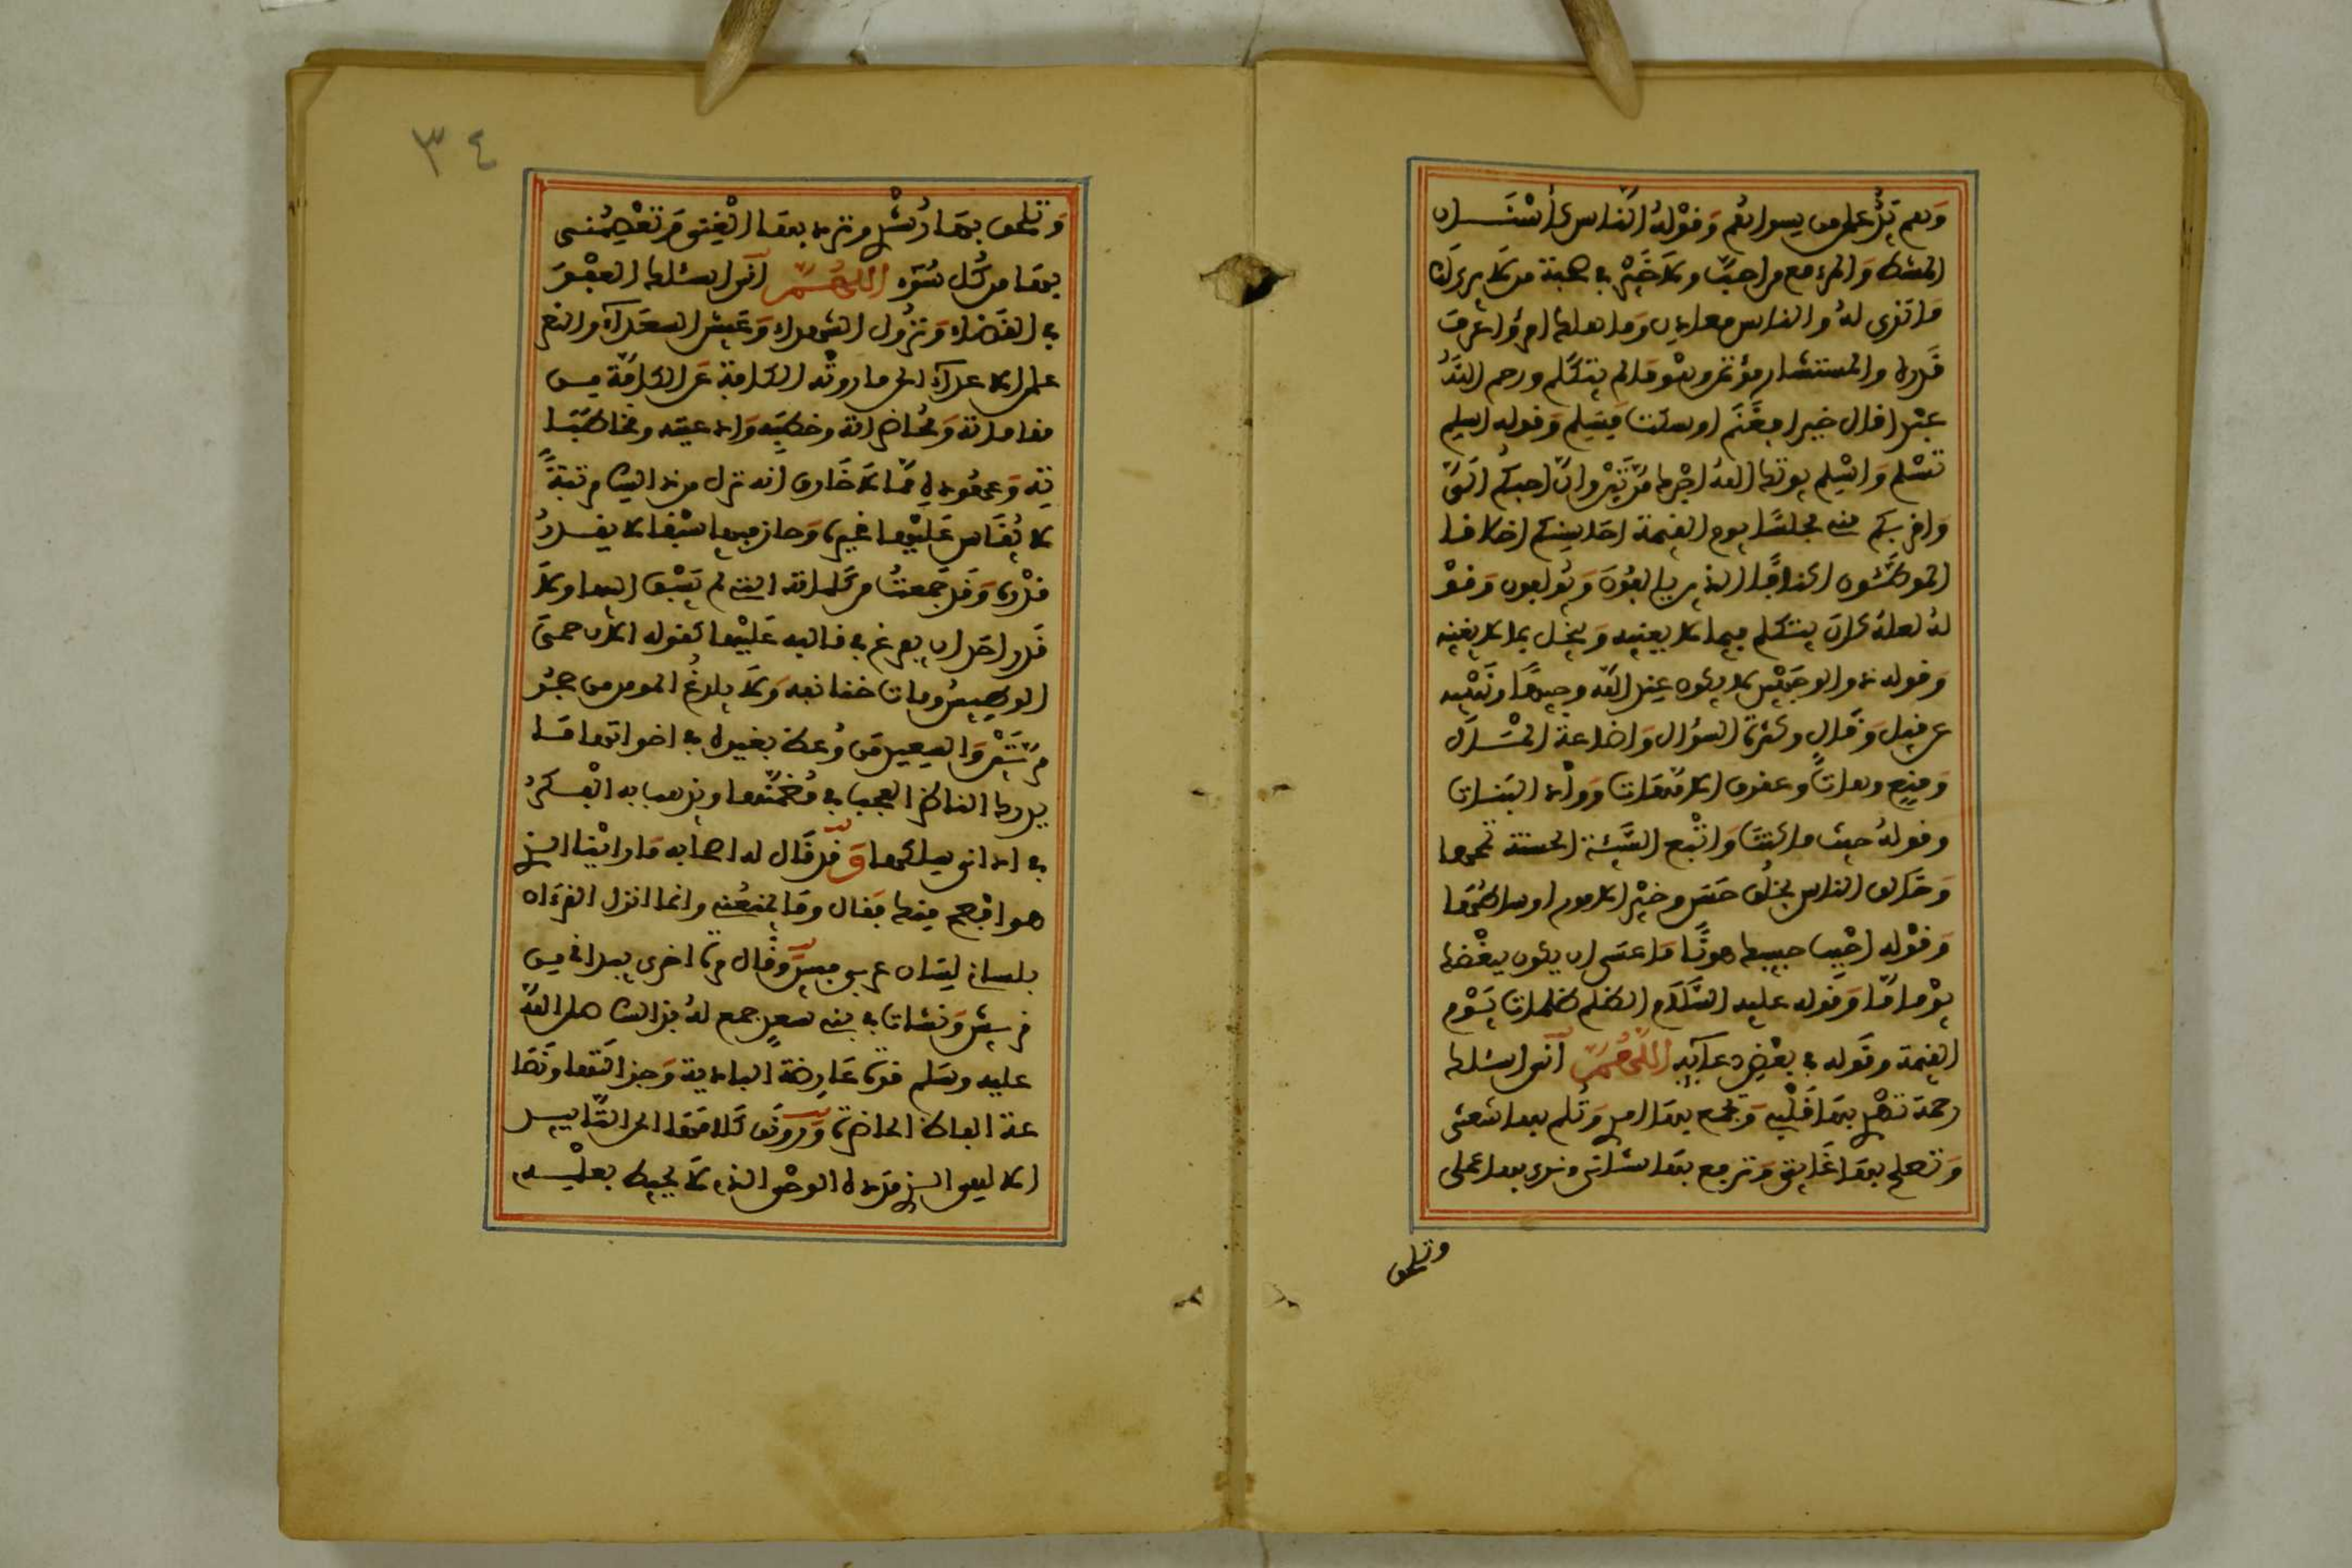 وهم يد على من سواهم وقوله الناس كأسنان
المشط والمرء مع من احب ولا خير في صحبة من لا يرى لك
ما ترى له والناس معادن وما هلك امرؤ عرف
قدره والمستشار مؤتمن وهو ما لم يتكلم ورحم الله
عبدا قال خيرا فغنم او سكت فسلم وقوله اسلم
تسلم واسلم يوتك الله اجرك مرتين وان احبكم الي
واقربكم مني مجلسا يوم القيمة احاسنكم اخلاقا
الموطئون اكنافا الذين يالفون ويولفون وقو
له لعله كان يتكلم فيما لا يعنيه ويبخل بما لا يغنيه
وقوله ذو الوجهين لا يكون عند الله وجيها ونهيه
عن قيل وقال وكثرة السؤال واضاعة المال
ومنع وهات وعقوق الامهات وواد البنات
وقوله حيث ما كنت واتبع السيئة الحسنة تمحها
وخالق الناس بخلق حسن وخير الامور اوساطها
وقوله احبب حبيبك هونا ما عسى ان يكون بغيضك
يوما ما وقوله عليه السلام الظلم ظلمات يوم
القيمة وقوله في بعض دعائه اللهم اني اسئلك
رحمة تهدي بها قلبي وتجمع بها امري وتلم بها شعثي
وتصلح بها غائبي وترفع بها شاهدي وتزكي بها عملي
وتلهمني
٣٤
وتلهمني بها رشدي وترد بها الفتي وتعصمني
بها من كل سوء اللهم اني اسئلك الفوز
في القضاء ونزول الشهداء وعيش السعداء والنصر
على الاعداء الى ما روته الكافة عن الكافة من
مقاماته ومحاضراته وخطبه وادعيته ومخاطبا
ته وعهوده مما لا خلاف انه نزل من ذلك مرتبة
لا يقاس عليها غيره وحاز فيها سبقا لا يقدر
قدره وقد جمعت من كلماته التي لم يسبق اليها ولا
قدر احد ان يفرغ في قالبه عليها كقوله الان حمي
الوطيس ومات حتف انفه ولا يلدغ المومن من جحر
مرتين والسعيد من وعظ بغيره في اخواتها ما
يدرك الناظر العجب في مضمنها ويذهب به الفكر
في اداني حكمها وقد قال له اصحابه ما راينا الذي
هو افصح منك فقال وما يمنعني وانما انزل القرءان
بلساني لسان عربي مبين وقال مرة اخرى بيد اني من
قريش ونشات في بني سعد جمع له بذلك صلى الله
عليه وسلم قوة عارضة البادية وجزالتها ونصا
عة الفاظ الحاضرة ورونق كلامها الى التاييد
الالهي الذي مدده الوحي الذي لا يحيط بعلمه